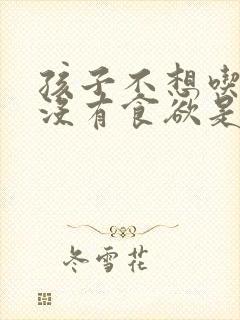 孩子不想喫
没有食欲是
冬雪花